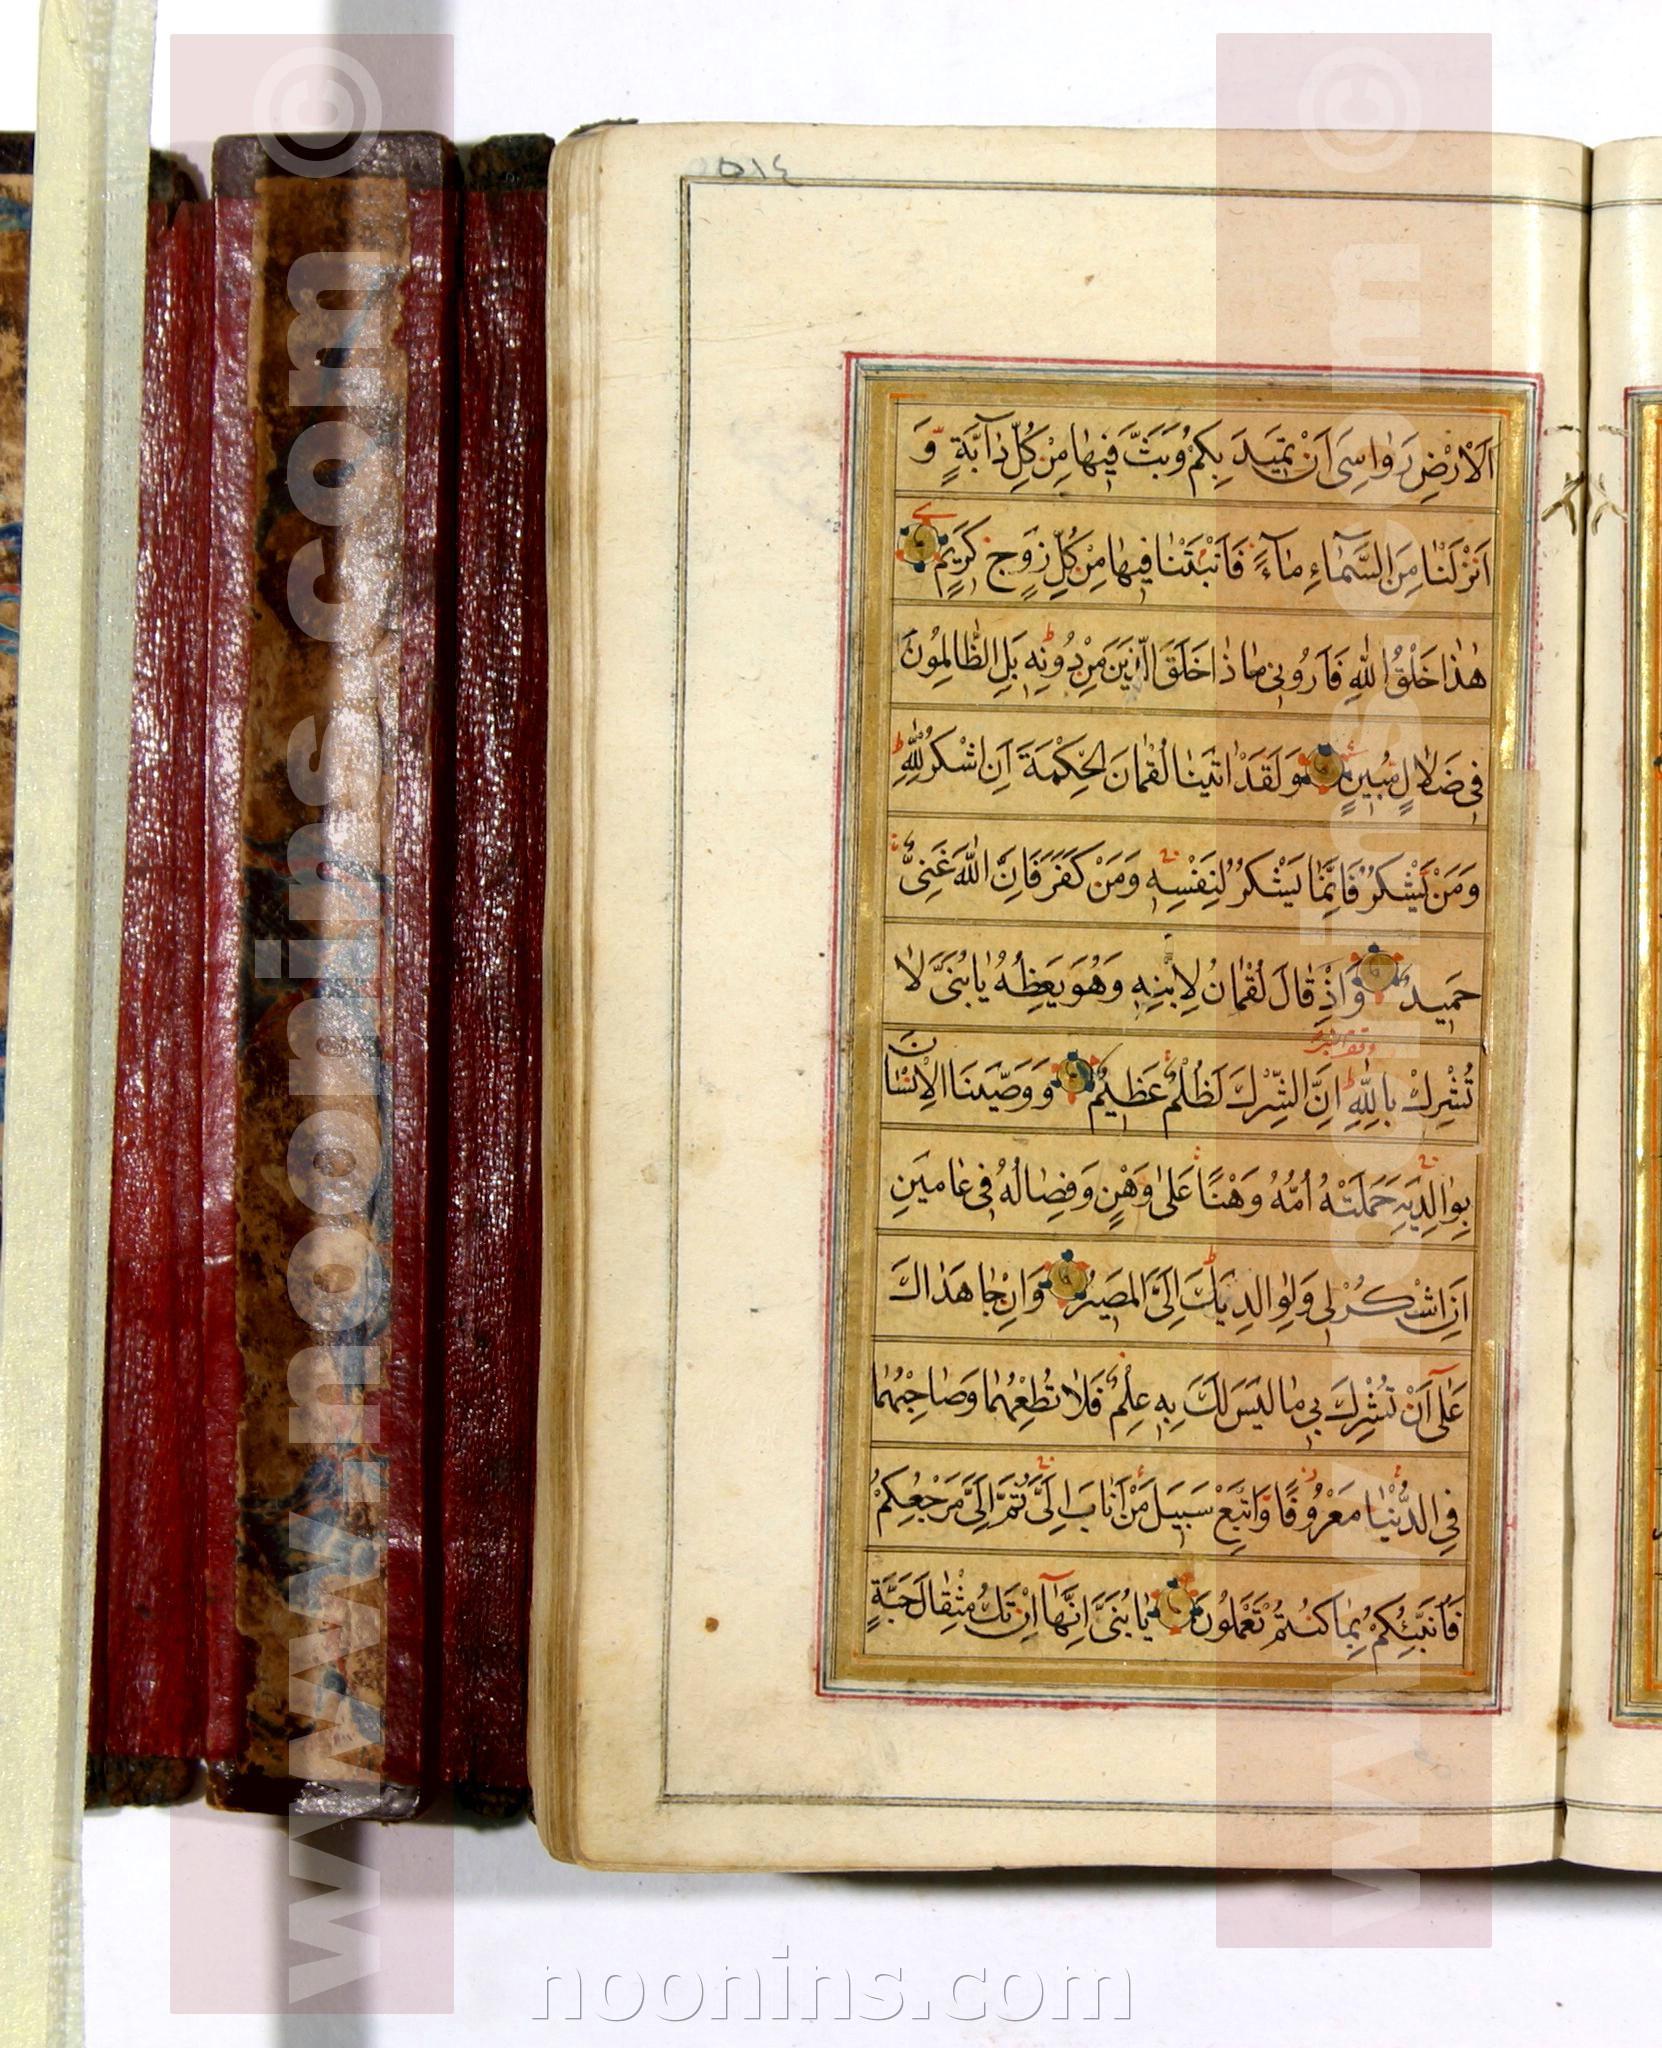 ٥١٤
اَلْاَرْضِ رَوٰاسِىَ اَنْ تَمٖيدَ بِكُمْ وَبَثَّ فٖيهٰا مِنْ كُلِّ دٰآبَّةٍ وَ
اَنْزَلْنٰا مِنَ السَّمٰآءِ مٰآءً فَاَنْبَتْنٰا فٖيهٰا مِنْ كُلِّ زَوْجٍ كَرٖيمٍ
هٰذٰا خَلْقُ اللّٰهِ فَاَرُونٖى مٰا ذٰا خَلَقَ الَّذٖينَ مِنْ دُونِهٖ بَلِ الظّٰالِمُونَ
فٖى ضَلٰالٍ مُبٖينٍ وَلَقَدْ اٰتَيْنٰا لُقْمٰانَ الْحِكْمَةَ اَنِ اشْكُرْ لِلّٰهِ
وَمَنْ يَشْكُرْ فَاِنَّمٰا يَشْكُرُ لِنَفْسِهٖ وَمَنْ كَفَرَ فَاِنَّ اللّٰهَ غَنِىٌّ
حَمٖيدٌ وَاِذْ قٰالَ لُقْمٰانُ لِابْنِهٖ وَهُوَ يَعِظُهُ يٰا بُنَىَّ لٰا
تُشْرِكْ بِاللّٰهِ اِنَّ الشِّرْكَ لَظُلْمٌ عَظٖيمٌ وَوَصَّيْنَا الْاِنْسٰانَ
بِوٰالِدَيْهِ حَمَلَتْهُ اُمُّهُ وَهْنًا عَلٰى وَهْنٍ وَفِصٰالُهُ فٖى عٰامَيْنِ
اَنِ اشْكُرْ لٖى وَلِوٰالِدَيْكَ اِلَىَّ الْمَصٖيرُ وَاِنْ جٰاهَدٰاكَ
عَلٰٓى اَنْ تُشْرِكَ بٖى مٰا لَيْسَ لَكَ بِهٖ عِلْمٌ فَلٰا تُطِعْهُمٰا وَصٰاحِبْهُمٰا
فِى الدُّنْيٰا مَعْرُوفًا وَاتَّبِعْ سَبٖيلَ مَنْ اَنٰابَ اِلَىَّ ثُمَّ اِلَىَّ مَرْجِعُكُمْ
فَاُنَبِّئُكُمْ بِمٰا كُنْتُمْ تَعْمَلُونَ يٰا بُنَىَّ اِنَّهٰآ اِنْ تَكُ مِثْقٰالَ حَبَّةٍ
www.noonins.com ©
www.noonins.com ©
noonins.com